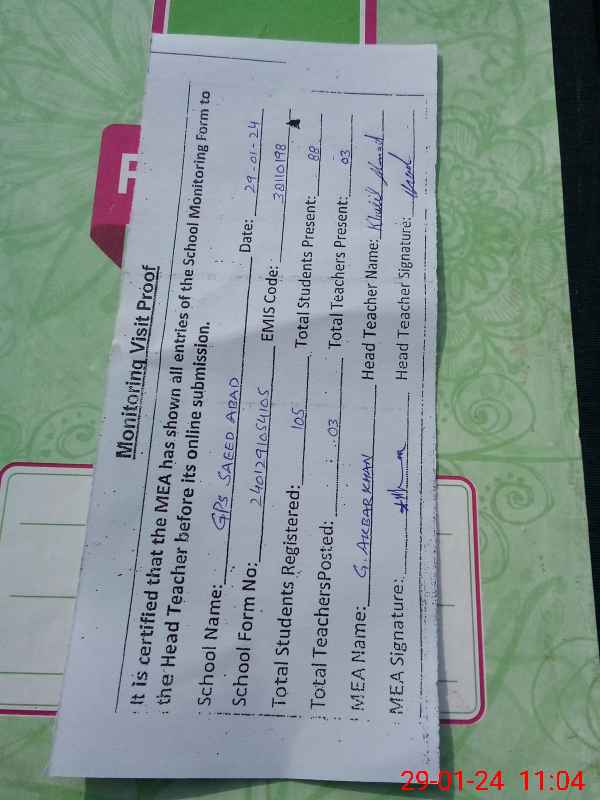 Monitoring Visit Proof
It is certified that the MEA has shown all entries of the School Monitoring Form to
the Head Teacher before its online submission.
School Name: GPS SAEED ABAD Date: 29-01-24
School Form No: 2401291054105 EMIS Code: 38110198
Total Students Registered: 105 Total Students Present: 88
Total TeachersPosted: 03 Total Teachers Present: 03
MEA Name: G. AKBAR KHAN Head Teacher Name: Khalil Ahmad
MEA Signature: Head Teacher Signature:
29-01-24 11:04